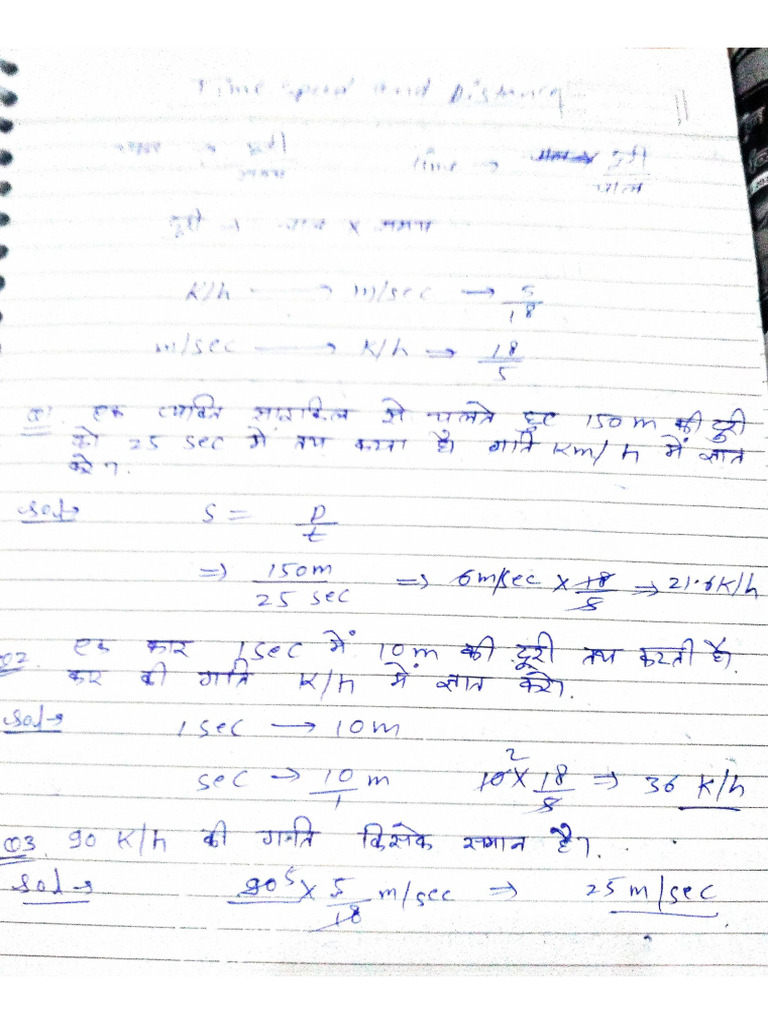 Time Speed and Distance
दूरी Time → दूरी
चाल
दूरी → चाल x समय
K/h → m/sec → 5/18
m/sec → K/h → 18/5
Q1. एक व्यक्ति साइकिल से चलते हुए 150m की दूरी
को 25 sec में तय करता है। गति Km/h में ज्ञात
करे।
Sol→ S = D/t
⇒ 150m/25 sec ⇒ 6m/sec x 18/5 → 21.6K/h
Q2. एक कार 1sec में 10m की दूरी तय करती है।
कार की गति K/h में ज्ञात करे।
Sol→ 1sec → 10m
sec → 10/1 m 10 2 x 18/5 ⇒ 36 K/h
Q3. 90 K/h की गति किसके समान है?
Sol→ 90 5 x 5/18 m/sec ⇒ 25 m/sec